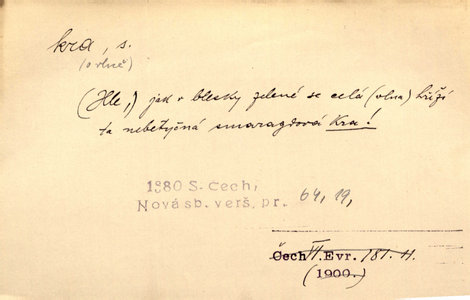 kra, s.
(o vlně)
(Hle,) jak v blesky zelené se celá (vlna) hříží
ta nebetyčná smaragdová kra!
1880 S. Čech,
Nová sb. verš. pr. 64, 19,
Čech VI. Evr. 181. 11
(1900.)